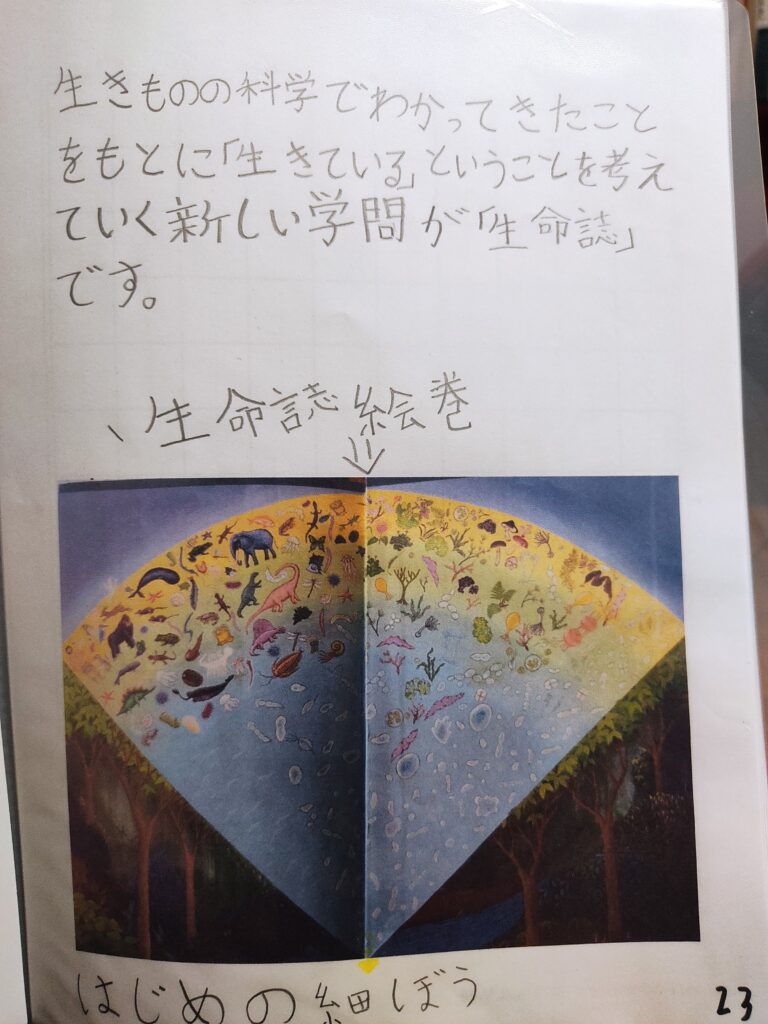 生きものの科学でわかってきたこと
をもとに「生きている」ということを考え
ていく新しい学問が「生命誌」
です。
、生命誌絵巻
はじめの細ぼう
23